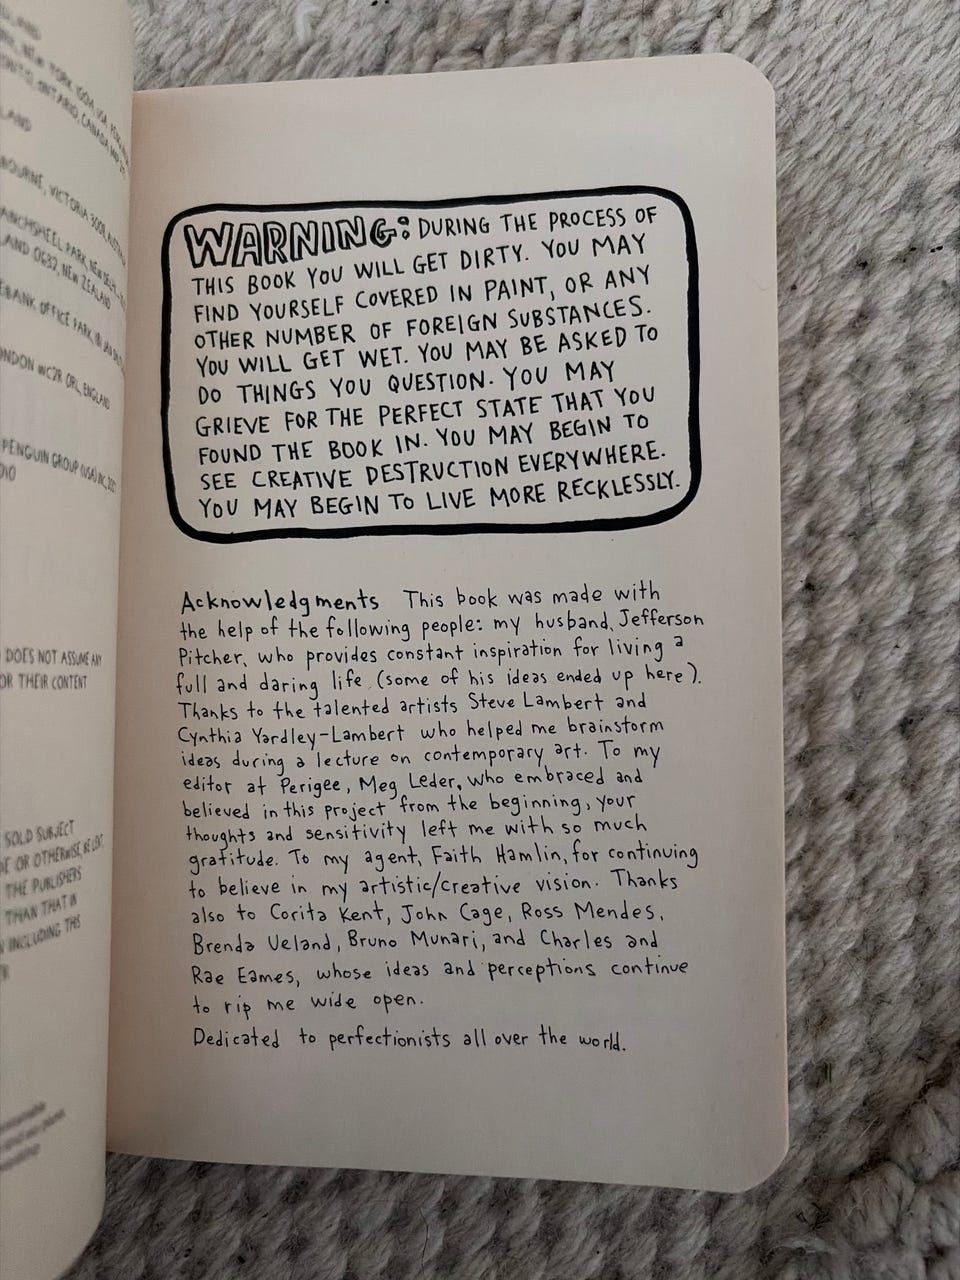 LAND
MELBOURNE, VICTORIA 3008,
PARK, NEW
LAND 0632, NEW ZEALAND
OFFICE PARK,
LONDON WC2R 0RL, ENGLAND
PENGUIN GROUP (USA) INC, 2007
DOES NOT ASSUME ANY
OR THEIR CONTENT
SOLD SUBJECT
OR OTHERWISE, BE LENT,
THE PUBLISHER'S
THAN THAT IN
INCLUDING THIS
WARNING: DURING THE PROCESS OF
THIS BOOK YOU WILL GET DIRTY. YOU MAY
FIND YOURSELF COVERED IN PAINT, OR ANY
OTHER NUMBER OF FOREIGN SUBSTANCES.
YOU WILL GET WET. YOU MAY BE ASKED TO
DO THINGS YOU QUESTION. YOU MAY
GRIEVE FOR THE PERFECT STATE THAT YOU
FOUND THE BOOK IN. YOU MAY BEGIN TO
SEE CREATIVE DESTRUCTION EVERYWHERE.
YOU MAY BEGIN TO LIVE MORE RECKLESSLY.
Acknowledgments This book was made with
the help of the following people: my husband, Jefferson
Pitcher, who provides constant inspiration for living a
full and daring life (some of his ideas ended up here).
Thanks to the talented artists Steve Lambert and
Cynthia Yardley-Lambert who helped me brainstorm
ideas during a lecture on contemporary art. To my
editor at Perigee, Meg Leder, who embraced and
believed in this project from the beginning, your
thoughts and sensitivity left me with so much
gratitude. To my agent, Faith Hamlin, for continuing
to believe in my artistic/creative vision. Thanks
also to Corita Kent, John Cage, Ross Mendes,
Brenda Ueland, Bruno Munari, and Charles and
Rae Eames, whose ideas and perceptions continue
to rip me wide open.
Dedicated to perfectionists all over the world.